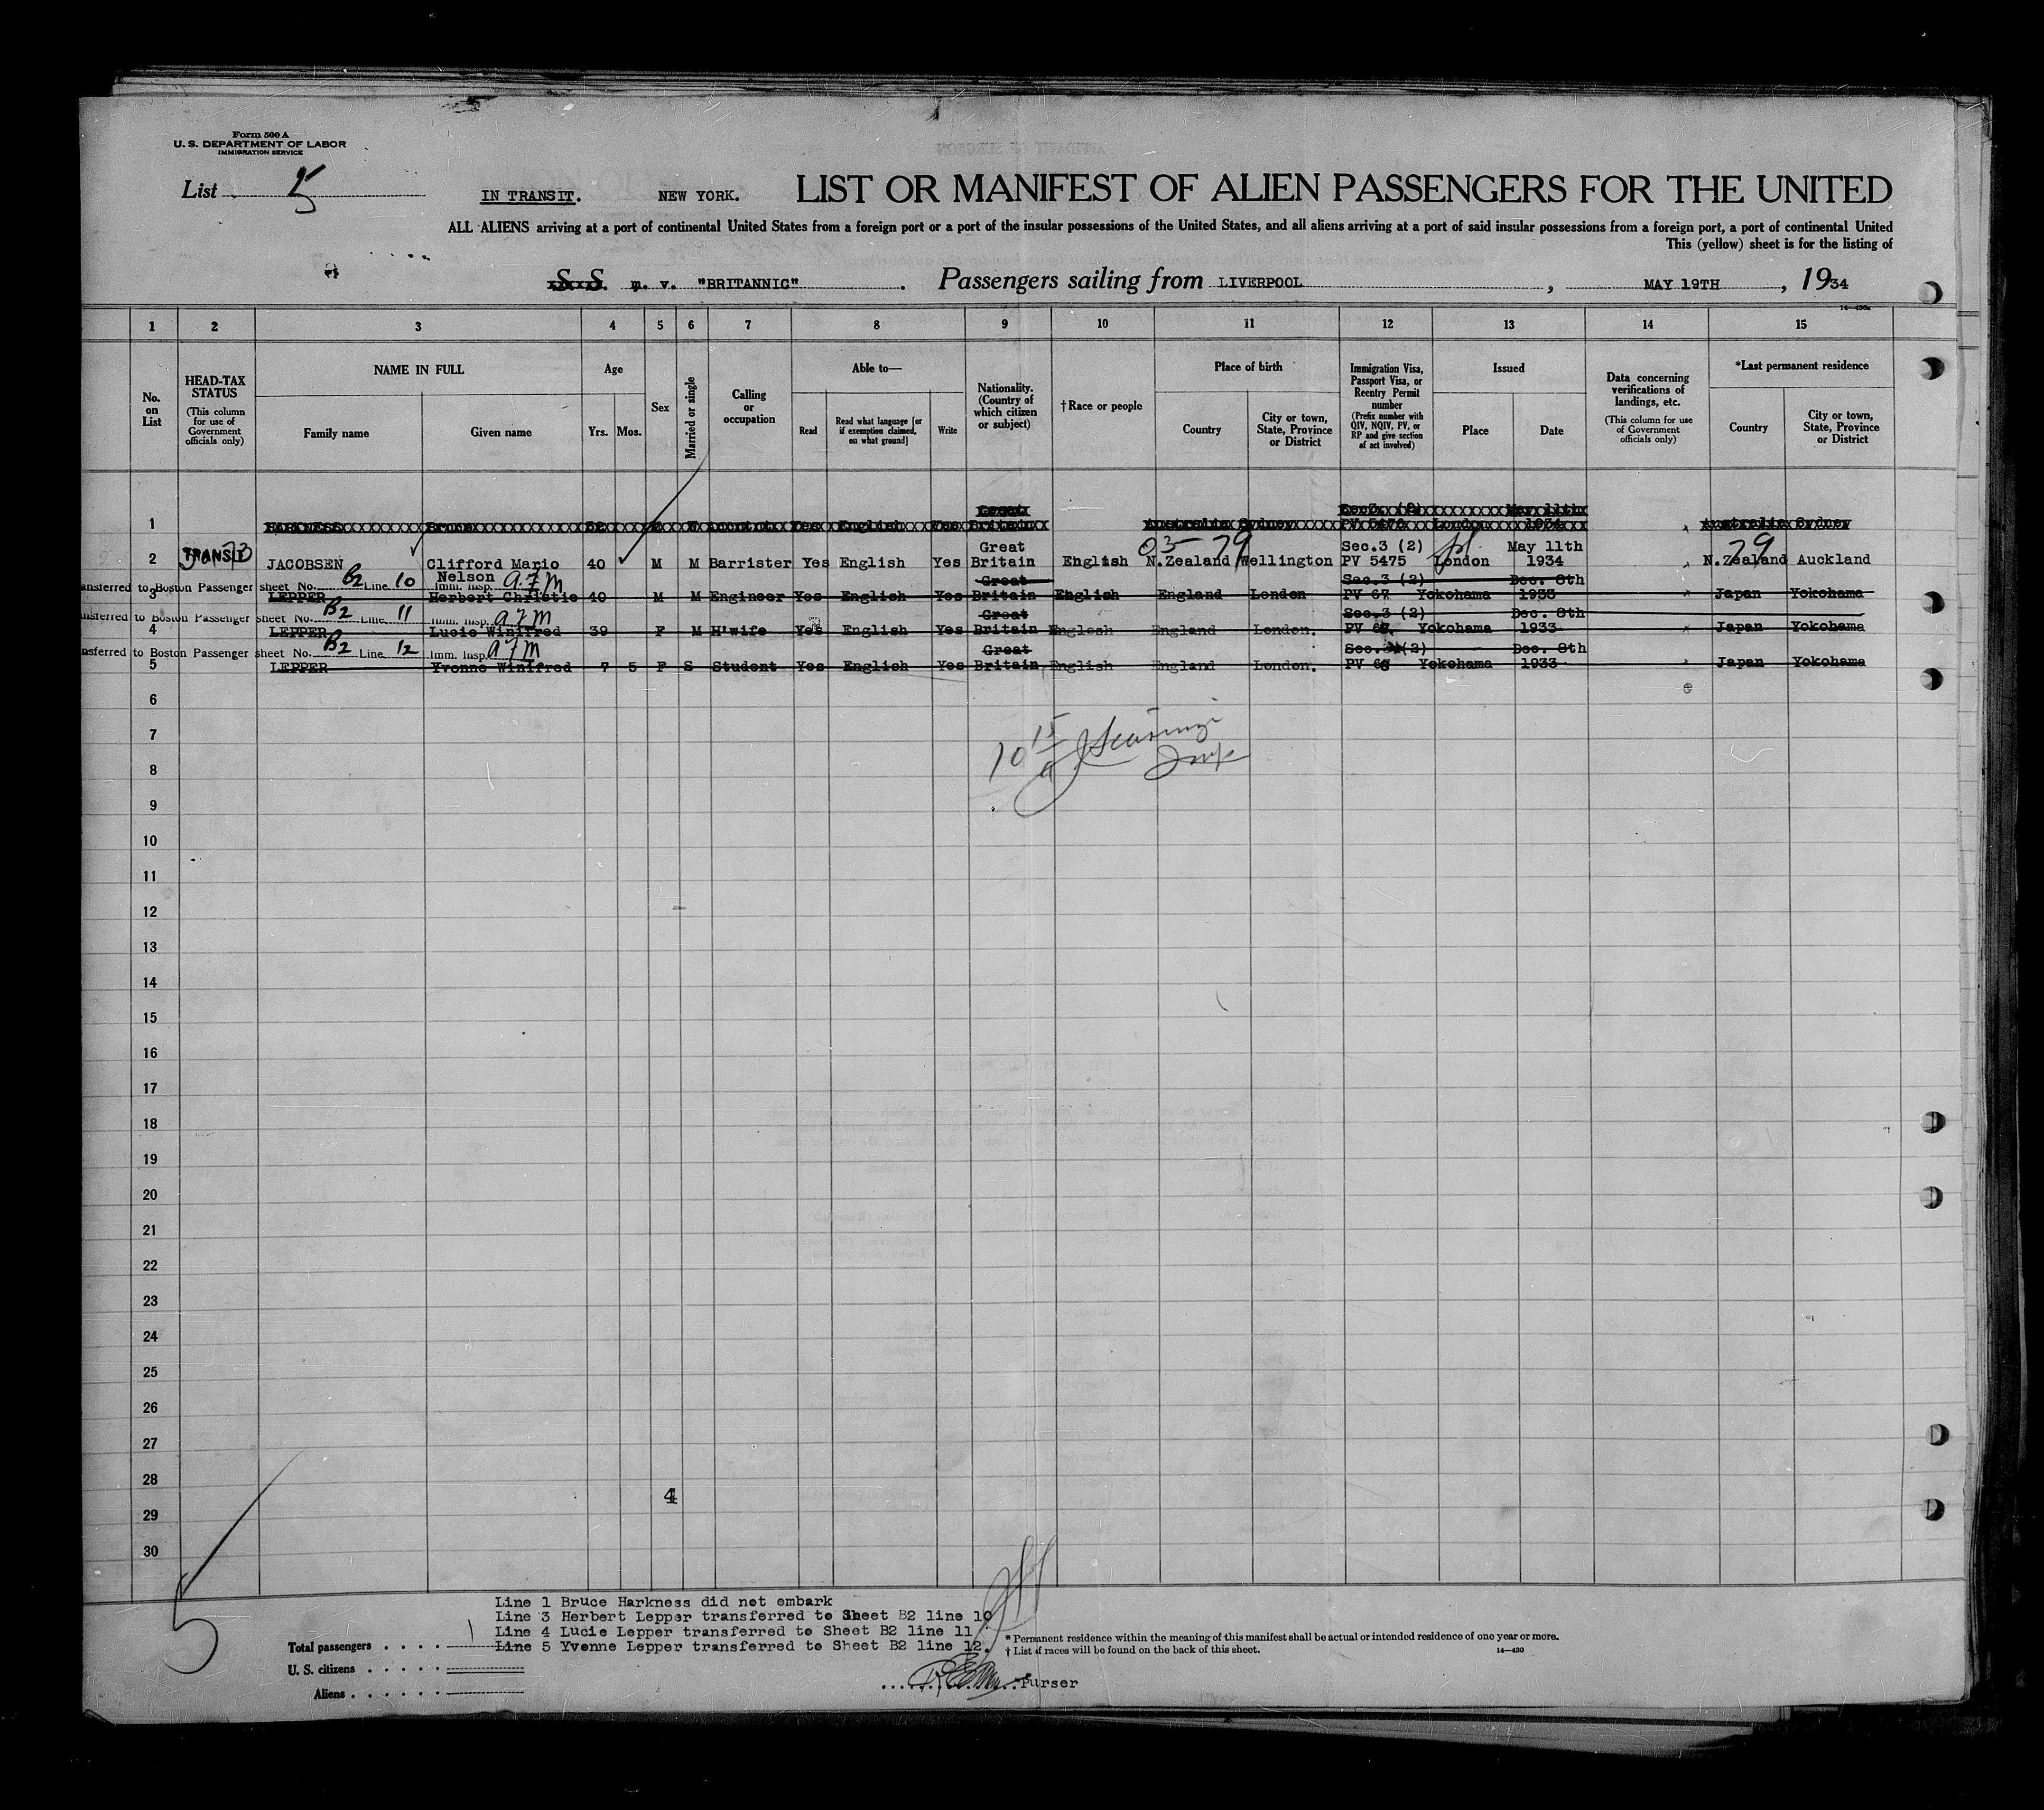 Form 500 A
U. S. DEPARTMENT OF LABOR
IMMIGRATION SERVICE
List 5
IN TRANSIT. NEW YORK. LIST OR MANIFEST OF ALIEN PASSENGERS FOR THE UNITED
ALL ALIENS arriving at a port of continental United States from a foreign port or a port of the insular possessions of the United States, and all aliens arriving at a port of said insular possessions from a foreign port, a port of continental United
This (yellow) sheet is for the listing of
S S m. v. "BRITANNIC" . Passengers sailing from LIVERPOOL , MAY 19TH , 1934
14—430a
1 2 3 4 5 6 7 8 9 10 11 12 13 14 15
No. on List
HEAD-TAX STATUS
(This column for use of Government officials only)
NAME IN FULL
Family name
Given name
Age
Yrs. Mos.
Sex
Married or single
Calling or occupation
Able to—
Read
Read what language [or if exemption claimed, on what ground]
Write
Nationality. (Country of which citizen or subject)
†Race or people
Place of birth
Country
City or town, State, Province or District
Immigration Visa, Passport Visa, or Reentry Permit number
(Prefix number with QIV, NQIV, PV, or RP and give section of act involved)
Issued
Place
Date
Data concerning verifications of landings, etc.
(This column for use of Government officials only)
*Last permanent residence
Country
City or town, State, Province or District
Great Sec.3. (2) May 11th
1 HARKNESS Bruce 32 M M Yes English Yes Britain Australia Sydney PV 5476 London 1934 Australia Sydney
03-79 79
Great Sec.3 (2) May 11th
2 TRANSIT JACOBSEN Clifford Mario 40 M M Barrister Yes English Yes Britain English N.Zealand Wellington PV 5475 London 1934 N.Zealand Auckland
Nelson
ansferred to Boston Passenger sheet No. B2 Line 10 Imm. Insp. a.7.m Great Sec.3 (2) Dec. 8th
3 LEPPER Herbert Christie 40 M M Engineer Yes English Yes Britain English England London PV 67 Yokohama 1933 Japan Yokohama
nsferred to Boston Passenger sheet No. B2 Line 11 Imm. Insp. a7m Great Sec.3 (2) Dec. 8th
4 LEPPER Lucie Winifred 39 F M H'wife Yes English Yes Britain English England London. PV Yokohama 1933 Japan Yokohama
nsferred to Boston Passenger sheet No. B2 Line 12 Imm. Insp. a7m Great Sec.3 (2) Dec. 8th
5 LEPPER Yvonne Winifred 7 5 F S Student Yes English Yes Britain English England London. PV Yokohama 1933 Japan Yokohama
6
7
10 15
8
9
10
11
12
13
14
15
16
17
18
19
20
21
22
23
24
25
26
27
28
4
29
30
5
Line 1 Bruce Harkness did not embark
Line 3 Herbert Lepper transferred to Sheet B2 line 10
Line 4 Lucie Lepper transferred to Sheet B2 line 11
Line 5 Yvonne Lepper transferred to Sheet B2 line 12.
Total passengers . . . . 1
U. S. citizens . . . . .
Aliens . . . . . .
* Permanent residence within the meaning of this manifest shall be actual or intended residence of one year or more.
† List of races will be found on the back of this sheet.
14—430
Purser